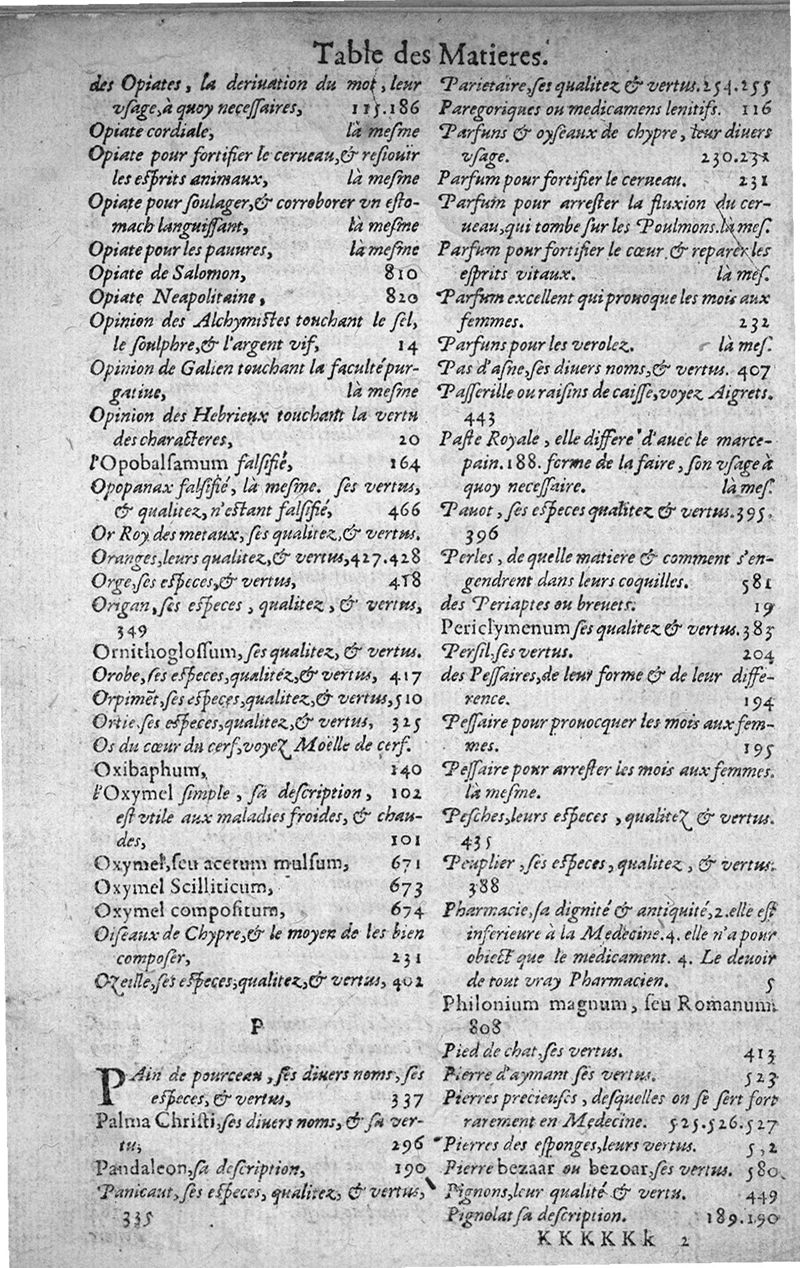 Table des Matieres.
des Opiates, la deriuation du mot, leur
vsage, à quoy necessaires, 115.186
Opiate cordiale, là mesme
Opiate pour fortifier le cerueau, & resiouir
les esprits animaux, là mesme
Opiate pour soulager, & corroborer vn esto-
mach languissant, là mesme
Opiate pour les pauures, là mesme
Opiate de Salomon, 810
Opiate Neapolitaine, 820
Opinion des Alchymistes touchant le sel,
le soulphre, & l'argent vif, 14
Opinion de Galien touchant la faculté pur-
gatiue, là mesme
Opinion des Hebrieux touchant la vertu
des characteres, 20
l'Opobalsamum falsifié, 164
Opopanax falsifié, là mesme. ses vertus,
& qualitez, n'estant falsifié, 466
Or Roy des metaux, ses qualitez, & vertus.
Oranges, leurs qualitez, & vertus, 427.428
Orge, ses especes, & vertus, 418
Origan, ses especes, qualitez, & vertus,
349
Ornithoglossum, ses qualitez, & vertus.
Orobe, ses especes, qualitéz, & vertus, 417
Orpimēt, ses especes, qualitez, & vertus, 510
Ortie, ses especes, qualitez, & vertus, 325
Os du cœur du cerf, voyez Moëlle de cerf.
Oxibaphum, 140
l'Oxymel simple, sa description, 102
est vtile aux maladies froides, & chau-
des, 101
Oxymel, seu acetum mulsum, 671
Oxymel Scilliticum, 673
Oxymel compositum, 674
Oiseaux de Chypre, & le moyen de les bien
composer, 231
Ozeille, ses especes, qualitez, & vertus, 402
P
PAin de pourceau, ses diuers noms, ses
especes, & vertus, 337
Palma Christi, ses diuers noms, & sa ver-
tu, 296
Pandaleon, sa description, 190
Panicaut, ses especes, qualitez, & vertus,
335
Parietaire, ses qualitez & vertus. 254.255
Paregoriques ou medicamens lenitifs. 116
Parfuns & oyseaux de chypre, leur diuers
vsage. 230.231
Parfum pour fortifier le cerueau. 231
Parfum pour arrester la fluxion du cer-
ueau, qui tombe sur les Poulmons. là mes.
Parfum pour fortifier le cœur & reparer les
esprits vitaux. là mes.
Parfum excellent qui prouoque les mois aux
femmes. 232
Parfuns pour les verolez. là mes.
Pas d'asne, ses diuers noms, & vertus. 407
Passerille ou raisins de caisse, voyez Aigrets.
443
Paste Royale, elle differe d'auec le marce-
pain. 188. forme de la faire, son vsage à
quoy necessaire. là mes.
Pauot, ses especes qualitez & vertus. 395.
396
Perles, de quelle matiere & comment s'en-
gendrent dans leurs coquilles. 581
des Periaptes ou breuets. 19
Periclymenum ses qualitez & vertus. 383
Persil, ses vertus. 204
des Pessaires, de leur forme & de leur diffe-
rence. 194
Pessaire pour prouocquer les mois aux fem-
mes. 195
Pessaire pour arrester les mois aux femmes.
là mesme.
Pesches, leurs especes, qualitez & vertus.
435
Peuplier, ses especes, qualitez, & vertus.
388
Pharmacie, sa dignité & antiquité, 2. elle est
inferieure à la Medecine. 4. elle n'a pour
obiect que le medicament. 4. Le deuoir
de tout vray Pharmacien. 5
Philonium magnum, seu Romanum
808
Pied de chat, ses vertus. 413
Pierre d'aymant ses vertus. 523
Pierres precieuses, desquelles on se sert fort
rarement en Medecine. 525.526.527
Pierres des esponges, leurs vertus.
Pierre bezaar ou bezoar, ses vertus. 580
Pignons, leur qualité & vertu. 449
Pignolat sa description. 189.190
KKKKKk 2